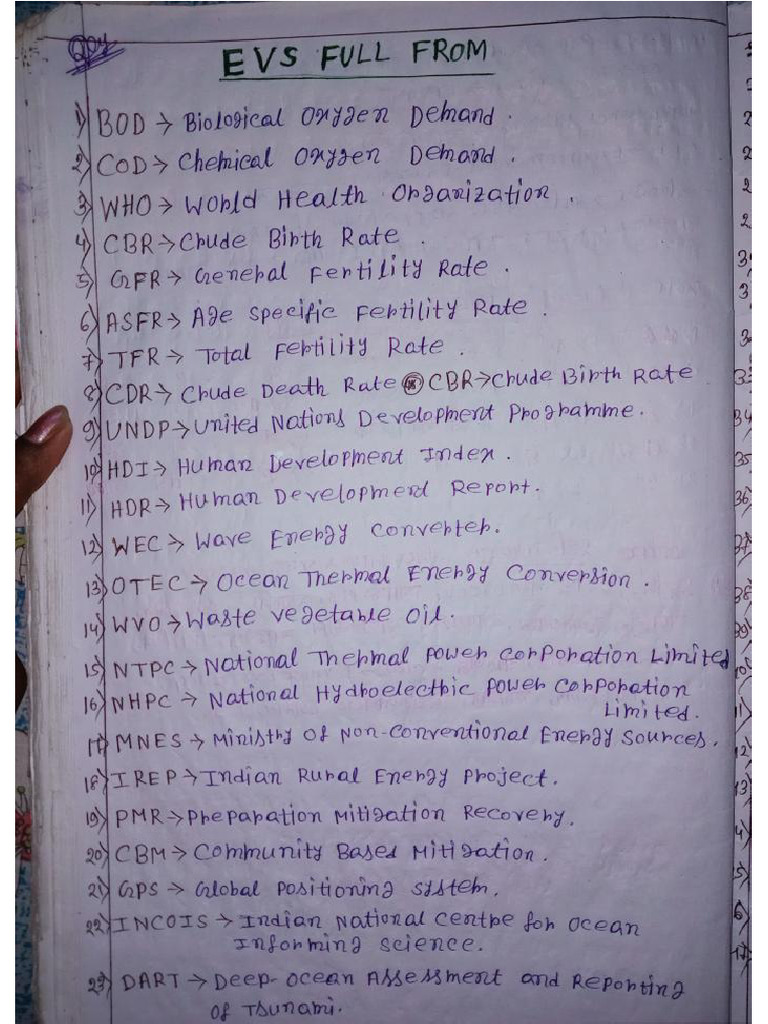 EVS FULL FROM
1) BOD → Biological Oxygen Demand.
2) COD → Chemical Oxygen Demand.
3) WHO → World Health Organization.
4) CBR → Crude Birth Rate.
5) GFR → General Fertility Rate.
6) ASFR → Age Specific Fertility Rate.
7) TFR → Total Fertility Rate.
8) CDR → Crude Death Rate CBR → Crude Birth Rate
9) UNDP → United Nations Development Programme.
10) HDI → Human Development Index.
11) HDR → Human Development Report.
12) WEC → Wave Energy Converter.
13) OTEC → Ocean Thermal Energy Conversion.
14) WVO → Waste vegetable Oil.
15) NTPC → National Thermal Power Corporation Limited
16) NHPC → National Hydroelectric Power Corporation
Limited.
17) MNES → Ministry Of Non-Conventional Energy Sources.
18) IREP → Indian Rural Energy Project.
19) PMR → Preparation Mitigation Recovery.
20) CBM → Community Based Mitigation.
21) GPS → Global Positioning System.
22) INCOIS → Indian National Centre for Ocean
Informing Science.
23) DART → Deep-Ocean Assessment and Reporting
of Tsunami.